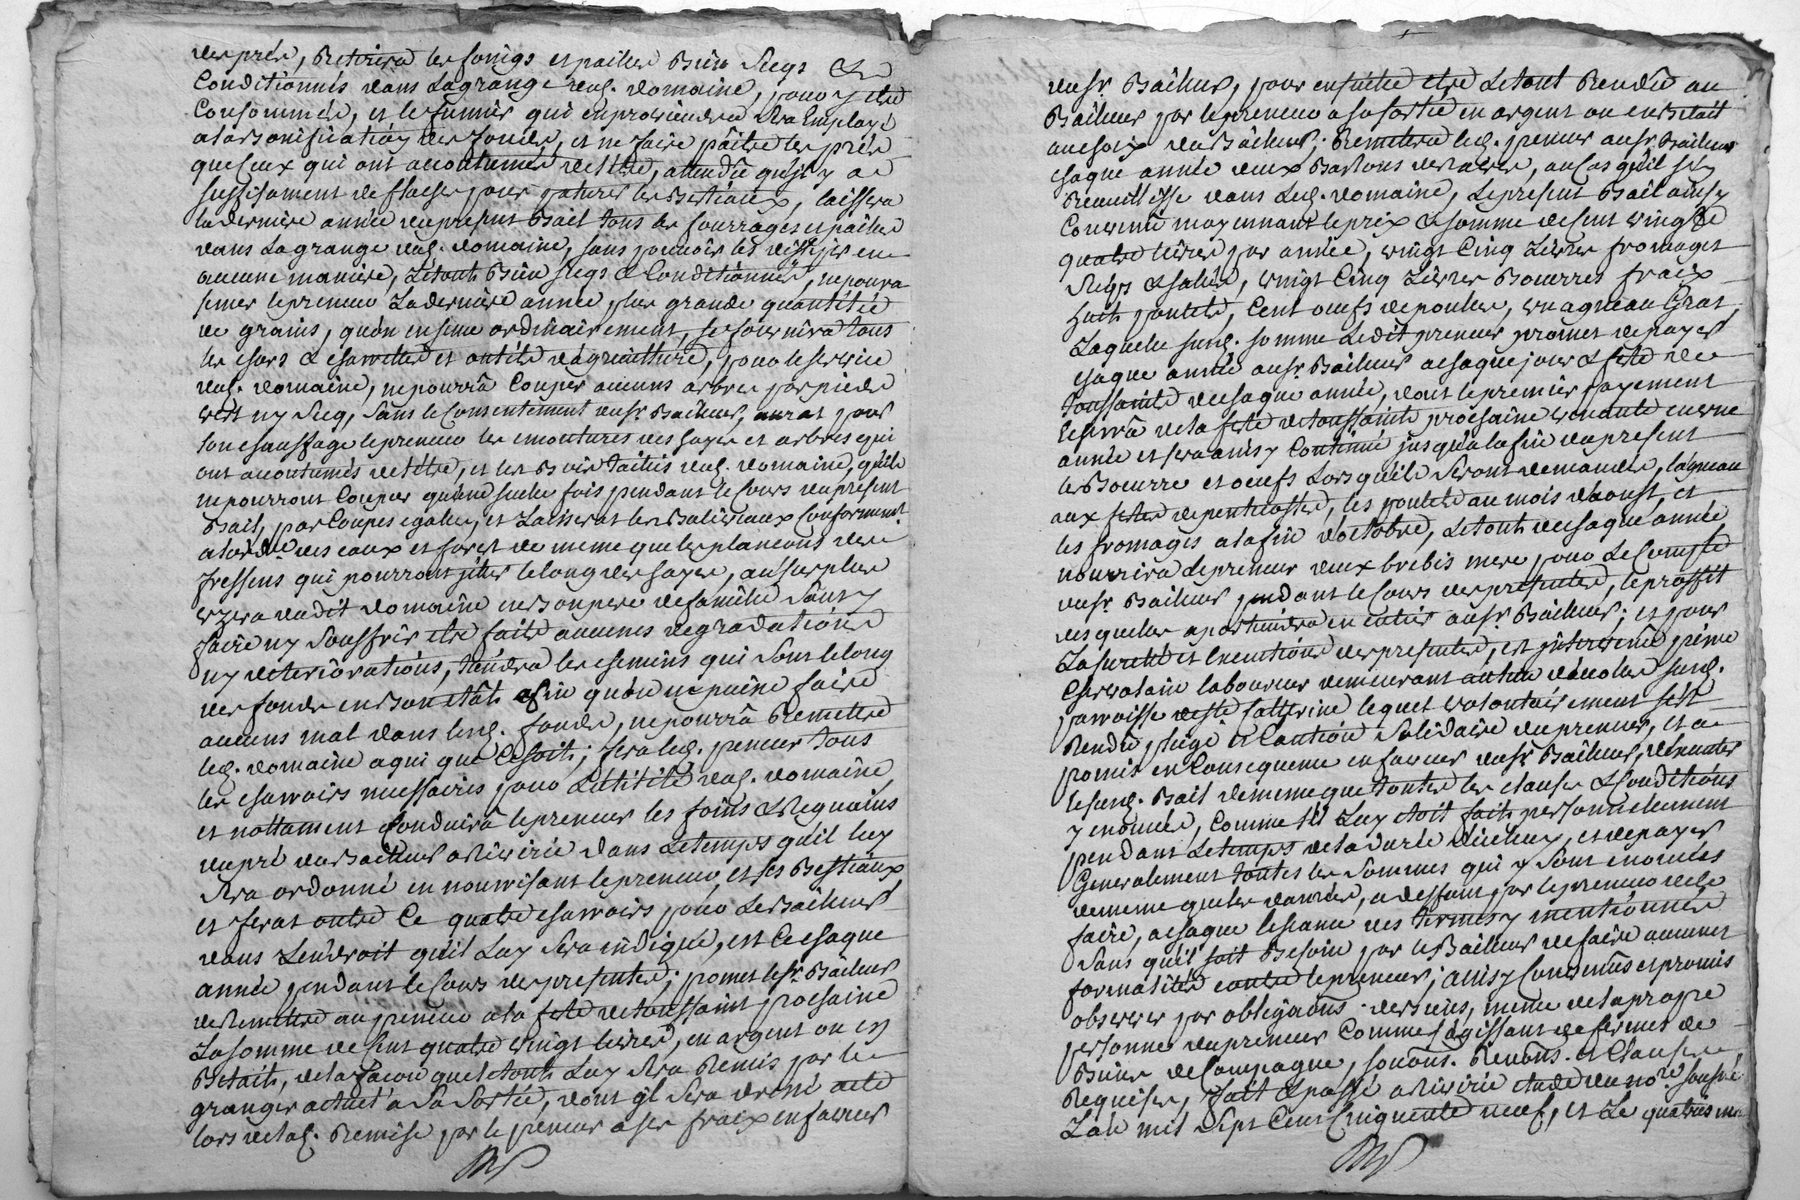 des prés, Retirera les foings et pailles Bien secqs &
Conditionnés dans La grange dud. domaine, pour y être
Consommés, et le fumier qui en proviendra sera Employé
a la bonification des fonds, et ne faire paître les prés
que ceux qui ont accoutumés de l'être, attendu qu'il y a
suffisament de pour paturer les Bestiaux, laissera
la derniere année du present Bail tous les fourrages et pailles
dans La grange dud. domaine, sans pouvoir les dissiper en
aucune maniere, Le tout Bien secqs & Conditionnés, ne poura
semer le preneur La derniere année plus grande quantité
de grains, qu'on en seme ordinairement, se fournira tous
les chars & charettes et outils d'agriculture, pour le service
dud. domaine, ne pourra Couper aucuns arbres par pieds
vert ny secq, sans le Consentement dud sr. Bailleur, aurat pour
son chauffage le preneur les emontures des hayes et arbres qui
ont accoutumés de l'être, et les Bois taillis dud. domaine, qu'ils
ne pourront Couper qu'une seule fois pendant le Cours du present
Bail, par Coupes egales, et Laisserat les Baliveaux Conformement
a l'ord.ce des eaux et foret de meme que les plançons de
fressens qui pourront jetter le long des hayes, au surplus
Uzera dudit domaine en bon pere de famille sans y
faire ny souffrir etre faite aucunes degradations
ny deteriorations, tiendra les chemins qui sont le long
des fonds en bon etat afin qu'on ne puisse faire
aucuns mal dans lesd. fonds, ne pourra Remettre
led. domaine a qui que Ce soit; fera led. preneur tous
les charrois necessaires pour L'utilité dud. domaine,
et nottament Conduira le preneur les foins & Reguains
du pré du Bailleur a Rivirie dans Le temps qu'il luy
sera ordonné en nourrisant le preneur, et ses Bestiaux
et ferat outre Ce quatre charrois pour Le Bailleur
dans L'endroit qu'il Luy sera indiqué, et Ce chaque
année pendant le Cours des presentes; promet led sr. Bailleur
de Remettre au preneur a la fete de toussaint prochaine
La somme de Cent quatre vingt livres, en argent ou en
Betail, de la façon que le tout Luy sera Remis par le
granger actuel a sa sortie, dont il sera dressé acte
lors de lad. Remise par le preneur a ses fraix en faveur
dud sr. Bailleur, pour ensuitte etre Le tout Rendu au
Bailleur par le preneur a sa sortie en argent ou en Betail
au choix du Bailleur; Remettra led. preneur aud sr. Bailleur
chaque année deux Bastons de raves, au Cas qu'il s'en
Recueillisse dans Led. domaine, Le present Bail ainsy
Convenu moyennant le prix & somme de Cent vingt
quatre livres par année, vingt Cinq Livres fromages
secqs & salés, vingt Cinq Livres Bourres fraix
huit poulets, Cent oeufs de poules, un agneau Gras,
Laquelle susd. somme Ledit preneur promet de payer
chaque année aud sr. Bailleur a chaque jour & fete de
toussaints de chaque année, dont le premier payement
se fera de la fete de toussaints prochaine venante en une
année et sera ainsy Continué jusqu'a la fin du present
les Boeurre et oeufs Lorsqu'ils seront demandés, l'agneau
aux fetes de pentecostes, les poulets au mois d'aoust, et
les fromages a la fin d'octobre, Le tout de chaque année,
nourrira Le preneur deux brebis mere pour Le Compte
dud sr. Bailleur pendant le Cours des presentes, le proffit
desquelles apartiendra en entier aud sr. Bailleur; et pour
La sureté et Execution des presentes, est intervenu
laboureur demeurant susd.
parroisse de Ste Catherine lequel volontairement s'est
Rendu pleige et Caution solidaire du preneur, et a
promis en Consequence en faveur dud sr. Bailleur, d'executer
le susd. Bail de meme que toutes les clauses & Conditions
y enoncées, Comme s'il Luy etoit fait personnellement
pendant Le temps de la durée d'iceluy, et de payer
Generalement toutes les sommes qui y sont enoncées
de meme que les danrées, a deffaut par le preneur de le
faire, a chaque escheance des termes y mentionnés
sans qu'il soit Besoin par le Bailleur de faire aucunes
formalités contre le preneur; ainsy Convenus et promis
observer par obligaõns des biens, meme de la propre
personne du preneur Comme s'agissant de fermes de
Biens de Campagne, soumõns. Renõns. et Clauses
Requises, fait & passé a Rivirie etude du no.re soussné
L'an mil sept Cent Cinquante neuf, et Le quatries me